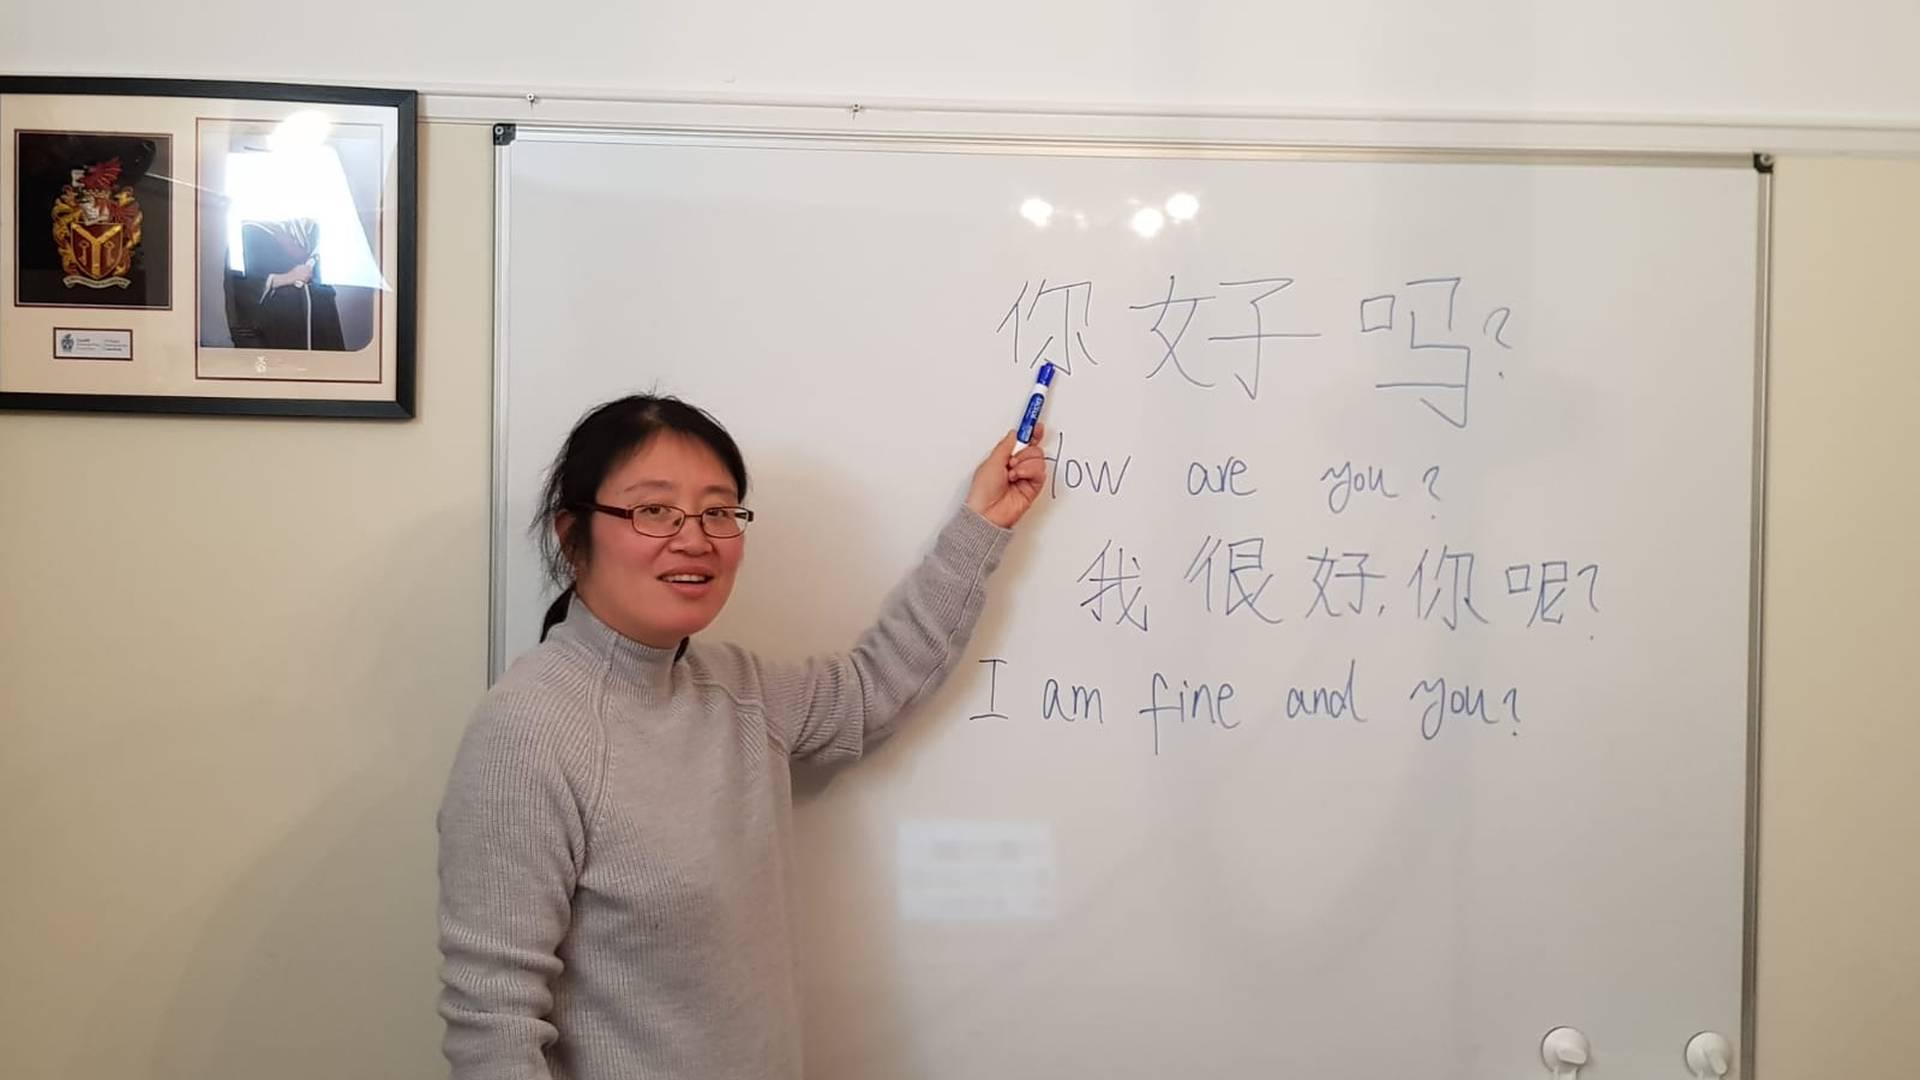 你好吗?
How are you?
我很好,你呢?
I am fine and you?